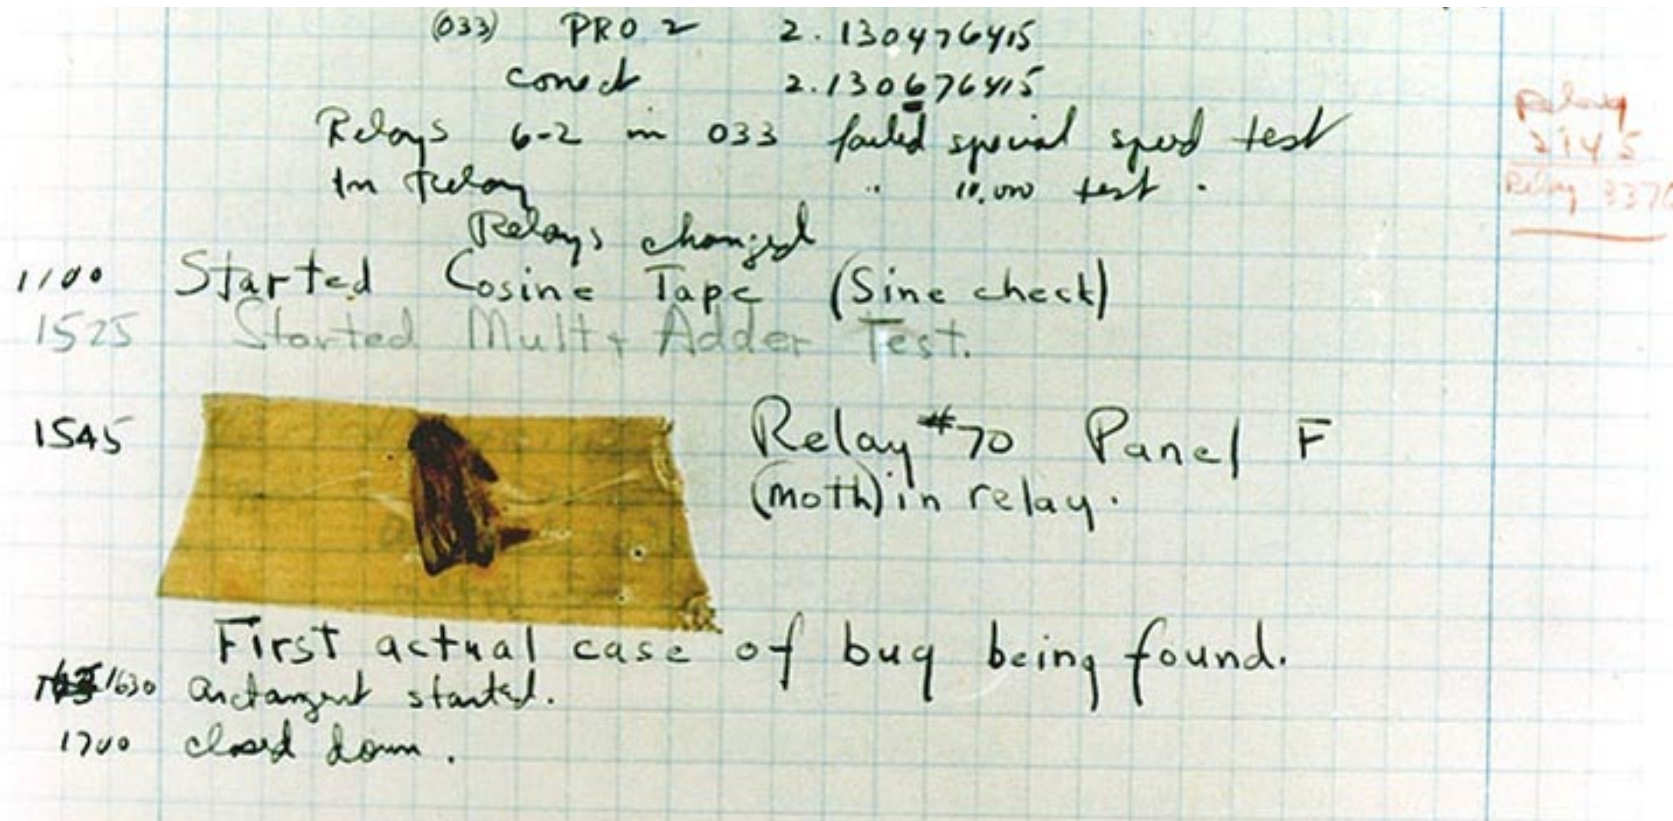 (033) PRO 2 2.130476415
conect 2.130676415
Relays 6-2 in 033 failed special speed test
In Relay " 10.000 test .
Relays changed
1100 Started Cosine Tape (Sine check)
1525 Started Mult + Adder Test.
1545 Relay #70 Panel F
(moth) in relay.
First actual case of bug being found.
1630 arctangent started.
1700 closed down .
Relay
2145
Relay 3370